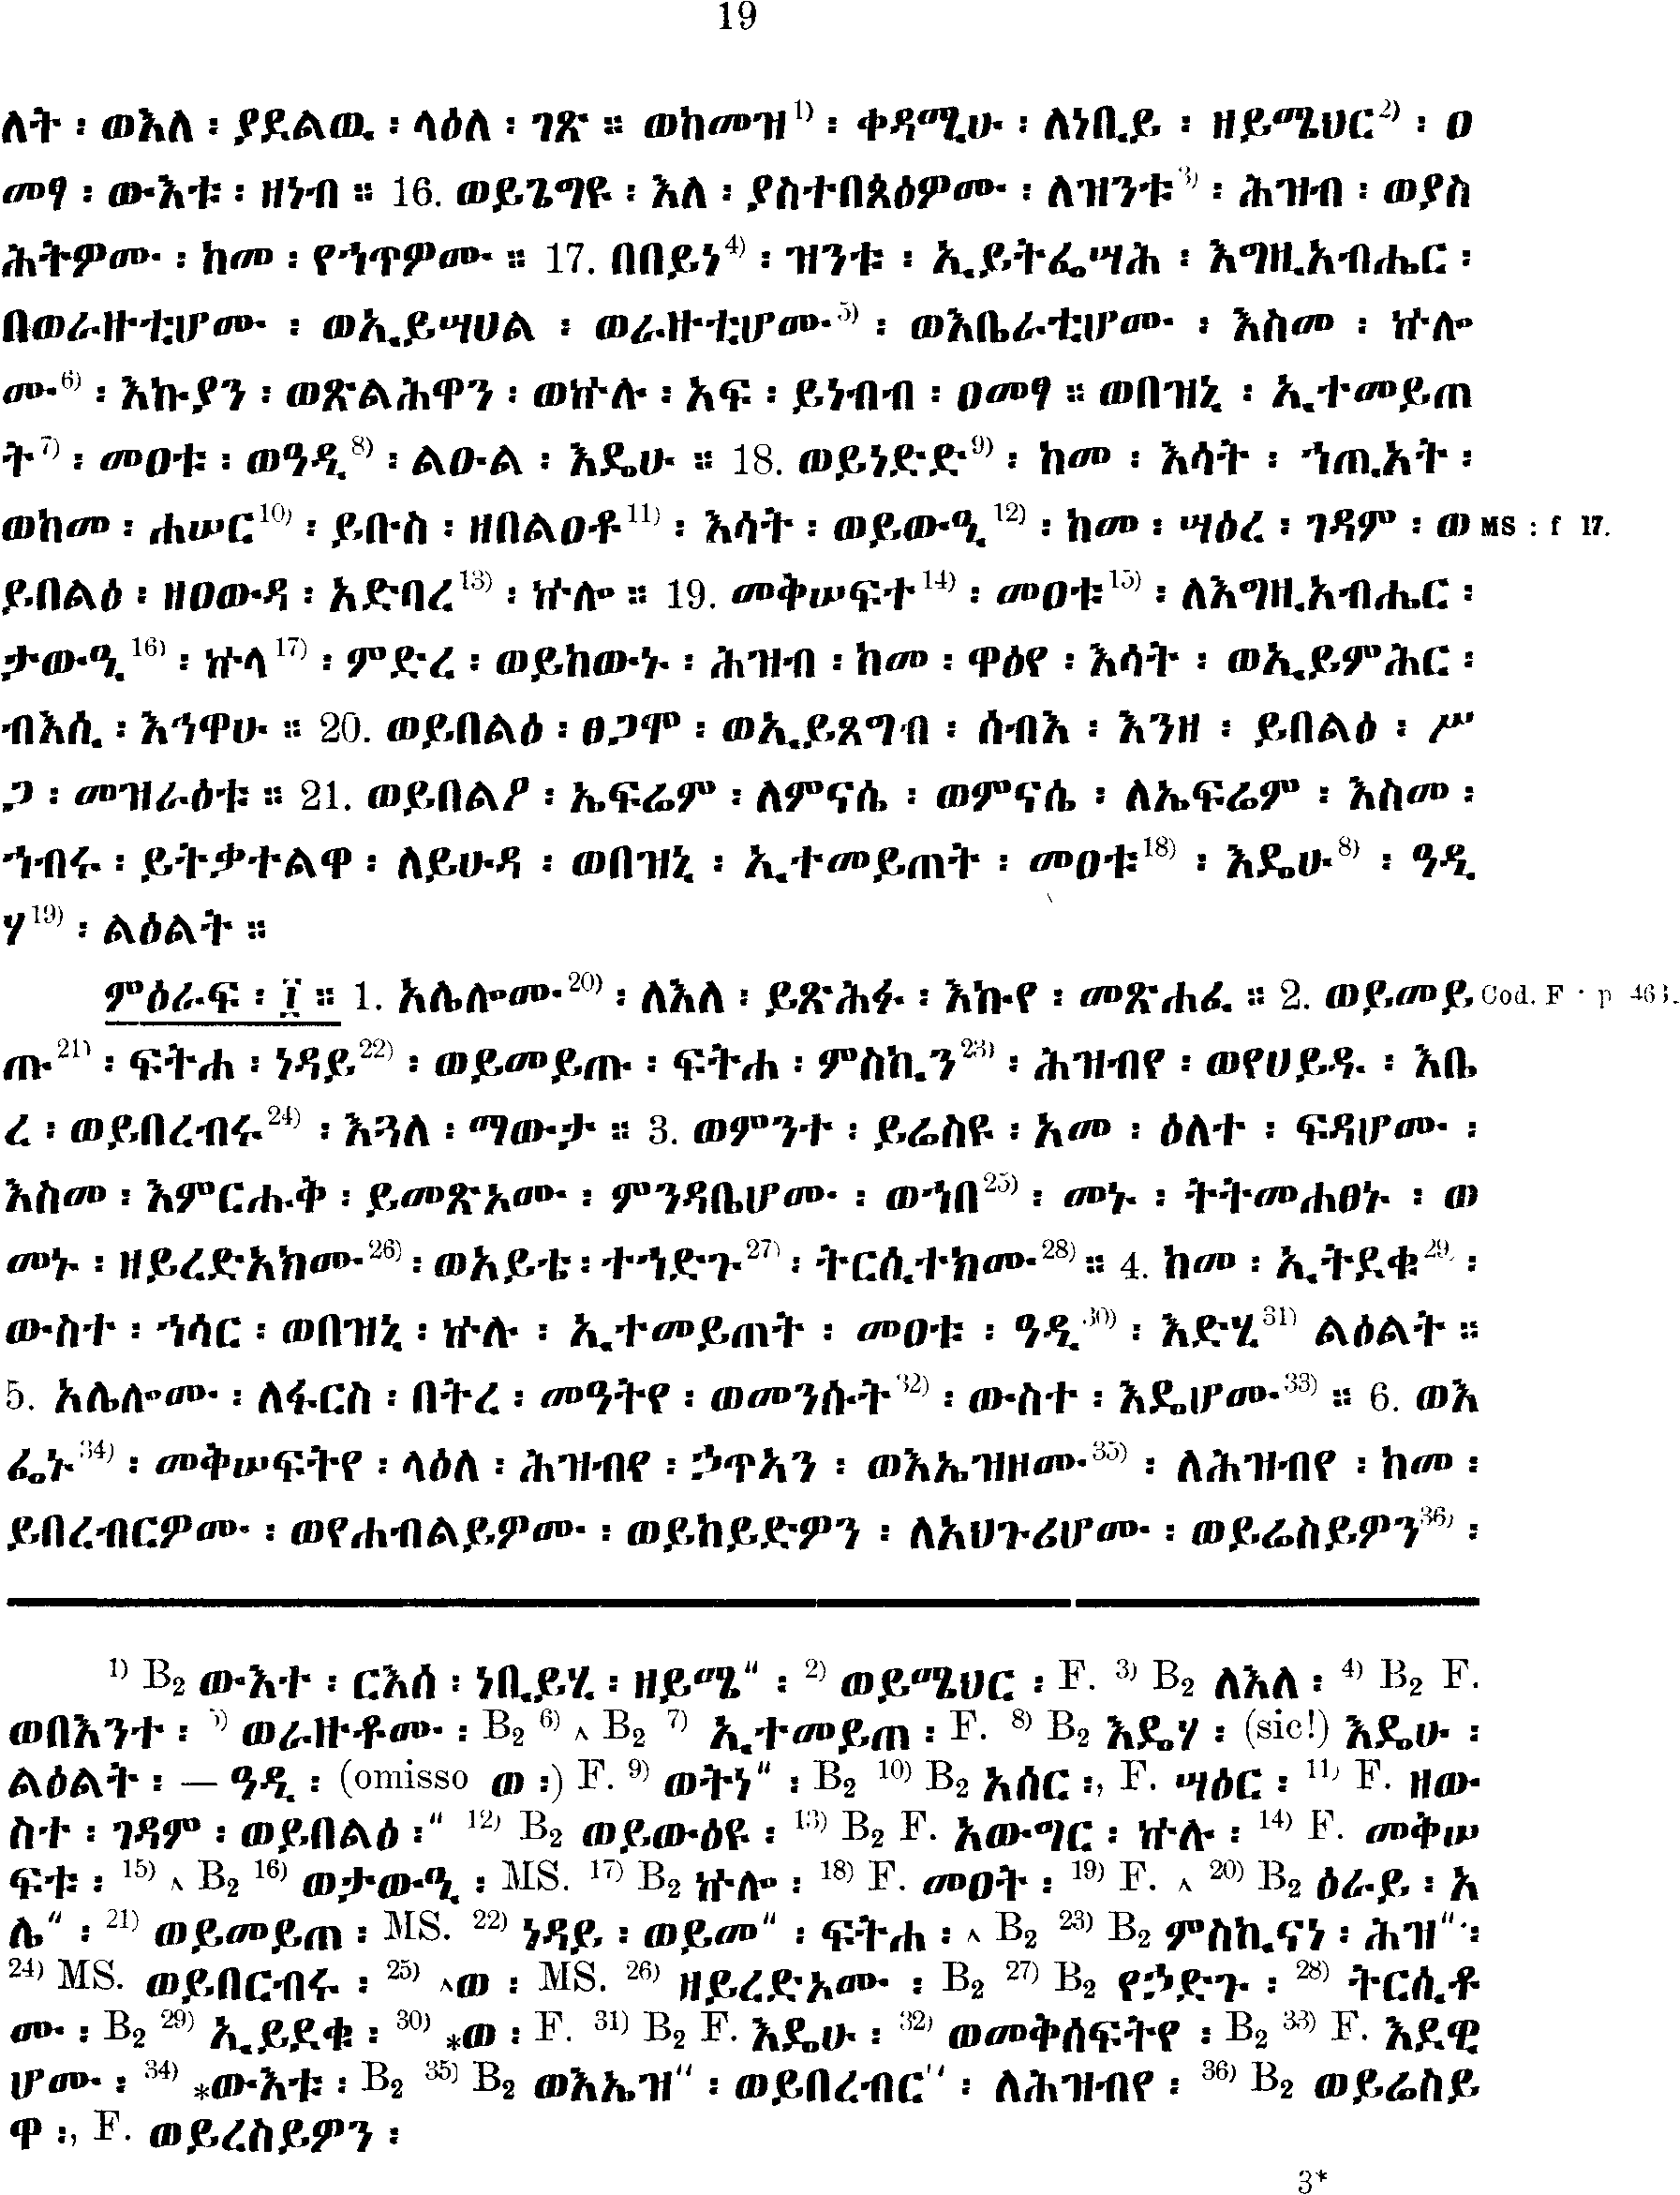 19
ለት ፡ ወእለ ፡ ያደልዉ ፡ ላዕለ ፡ ገጽ ። ወከመዝ1) ፡ ቀዳሚሁ ፡ ለነቢይ ፡ ዘይሜህር2) ፡ ዐ
መፃ ፡ ውእቱ ፡ ዘነብ ። 16. ወይጌግዩ ፡ እለ ፡ ያስተበጴዕዎሙ ፡ ለዝንቱ3) ፡ ሕዝብ ፡ ወያስ
ሕትዎሙ ፡ ከመ ፡ የኀጥዎሙ ። 17. በበይነ4) ፡ ዝንቱ ፡ ኢይትፌሣሕ ፡ እግዚአብሔር ፡
በወራዙቲሆሙ ፡ ወኢይሣህል ፡ ወራዙቲሆሙ5) ፡ ወእቤራቲሆሙ ፡ እስመ ፡ ኵሎ
ሙ6) ፡ እኩያን ፡ ወጽልሕዋን ፡ ወኵሉ ፡ አፍ ፡ ይነብብ ፡ ዐመፃ ። ወበዝኒ ፡ ኢተመይጠ
ት7) ፡ መዐቱ ፡ ወዓዲ8) ፡ ልዑል ፡ እዴሁ ። 18. ወይነድድ9) ፡ ከመ ፡ እሳት ፡ ኀጢአት ፡
ወከመ ፡ ሐሠር10) ፡ ይቡስ ፡ ዘበልዐቶ11) ፡ እሳት ፡ ወይውዒ12) ፡ ከመ ፡ ሣዕረ ፡ ገዳም ፡ ወ MS : f 17.
ይበልዕ ፡ ዘዐውዳ ፡ አድባረ13) ፡ ኵሎ ። 19. መቅሠፍተ14) ፡ መዐቱ15) ፡ ለእግዚአብሔር ፡
ታውዒ16) ፡ ኵላ17) ፡ ምድረ ፡ ወይከውኑ ፡ ሕዝብ ፡ ከመ ፡ ዋዕየ ፡ እሳት ፡ ወኢይምሕር ፡
ብእሲ ፡ እኅዋሁ ። 20. ወይበልዕ ፡ ፀጋሞ ፡ ወኢይጸግብ ፡ ሰብእ ፡ እንዘ ፡ ይበልዕ ፡ ሥ
ጋ ፡ መዝራዕቱ ። 21. ወይበልዖ ፡ ኤፍሬም ፡ ለምናሴ ፡ ወምናሴ ፡ ለኤፍሬም ፡ እስመ ፡
ኀብሩ ፡ ይትቃተልዋ ፡ ለይሁዳ ፡ ወበዝኒ ፡ ኢተመይጠት ፡ መዐቱ18) ፡ እዴሁ8) ፡ ዓዲ
ሃ19) ፡ ልዕልት ።
ምዕራፍ ፡ ፲ ። 1. አሌሎሙ20) ፡ ለእለ ፡ ይጽሕፉ ፡ እኩየ ፡ መጽሐፈ ። 2. ወይመይ Cod. F · p 463.
ጡ21) ፡ ፍትሐ ፡ ነዳይ22) ፡ ወይመይጡ ፡ ፍትሐ ፡ ምስኪን23) ፡ ሕዝብየ ፡ ወየሀይዱ ፡ እቤ
ረ ፡ ወይበረብሩ24) ፡ እጓለ ፡ ማውታ ። 3. ወምንተ ፡ ይሬስዩ ፡ አመ ፡ ዕለተ ፡ ፍዳሆሙ ፡
እስመ ፡ እምርሑቅ ፡ ይመጽአሙ ፡ ምንዳቤሆሙ ፡ ወኀበ25) ፡ መኑ ፡ ትትመሐፀኑ ፡ ወ
መኑ ፡ ዘይረድአክሙ26) ፡ ወአይቴ ፡ ተኀድጉ27) ፡ ትርሲተክሙ28) ። 4. ከመ ፡ ኢትደቁ29) ፡
ውስተ ፡ ኀሳር ፡ ወበዝኒ ፡ ኵሉ ፡ ኢተመይጠት ፡ መዐቱ ፡ ዓዲ30) ፡ እድሂ31) ልዕልት ።
5. አሌሎሙ ፡ ለፋርስ ፡ በትረ ፡ መዓትየ ፡ ወመንሱት32) ፡ ውስተ ፡ እዴሆሙ33) ። 6. ወእ
ፌኑ34) ፡ መቅሠፍትየ ፡ ላዕለ ፡ ሕዝብየ ፡ ኃጥኣን ፡ ወእኤዝዞሙ35) ፡ ለሕዝብየ ፡ ከመ ፡
ይበረብርዎሙ ፡ ወየሐብልይዎሙ ፡ ወይከይድዎን ፡ ለአህጉሪሆሙ ፡ ወይሬስይዎን36) ፡
1) B2 ውእተ ፡ ርእሰ ፡ ነቢይሂ ፡ ዘይሜ" ፡ 2) ወይሜህር ፡ F. 3) B2 ለእለ ፡ 4) B2 F.
ወበእንተ ፡ 5) ወራዙቶሙ ፡ B2 6) ^ B2 7) ኢተመይጠ ፡ F. 8) B2 እዴሃ ፡ (sic!) እዴሁ ፡
ልዕልት ፡ — ዓዲ ፡ (omisso ወ ፡) F. 9) ወትነ" ፡ B2 10) B2 አሰር ፡, F. ሣዕር ፡ 11) F. ዘው
ስተ ፡ ገዳም ፡ ወይበልዕ ፡" 12) B2 ወይውዕዩ ፡ 13) B2 F. አውግር ፡ ኵሉ ፡ 14) F. መቅሠ
ፍቱ ፡ 15) ^ B2 16) ወታውዒ ፡ MS. 17) B2 ኵሎ ፡ 18) F. መዐት ፡ 19) F. ^ 20) B2 ዕራይ ፡ አ
ሌ" ፡ 21) ወይመይጠ ፡ MS. 22) ነዳይ ፡ ወይመ" ፡ ፍትሐ ፡ ^ B2 23) B2 ምስኪናነ ፡ ሕዝ" ፡
24) MS. ወይበርብሩ ፡ 25) ^ወ ፡ MS. 26) ዘይረድአሙ ፡ B2 27) B2 የኃድጉ ፡ 28) ትርሲቶ
ሙ ፡ B2 29) ኢይደቁ ፡ 30) *ወ ፡ F. 31) B2 F. እዴሁ ፡ 32) ወመቅሰፍትየ ፡ B2 33) F. እደዊ
ሆሙ ፡ 34) *ውእቱ ፡ B2 35) B2 ወእኤዝ" ፡ ወይበረብር" ፡ ለሕዝብየ ፡ 36) B2 ወይሬስይ
ዋ ፡, F. ወይረስይዎን ፡
3*